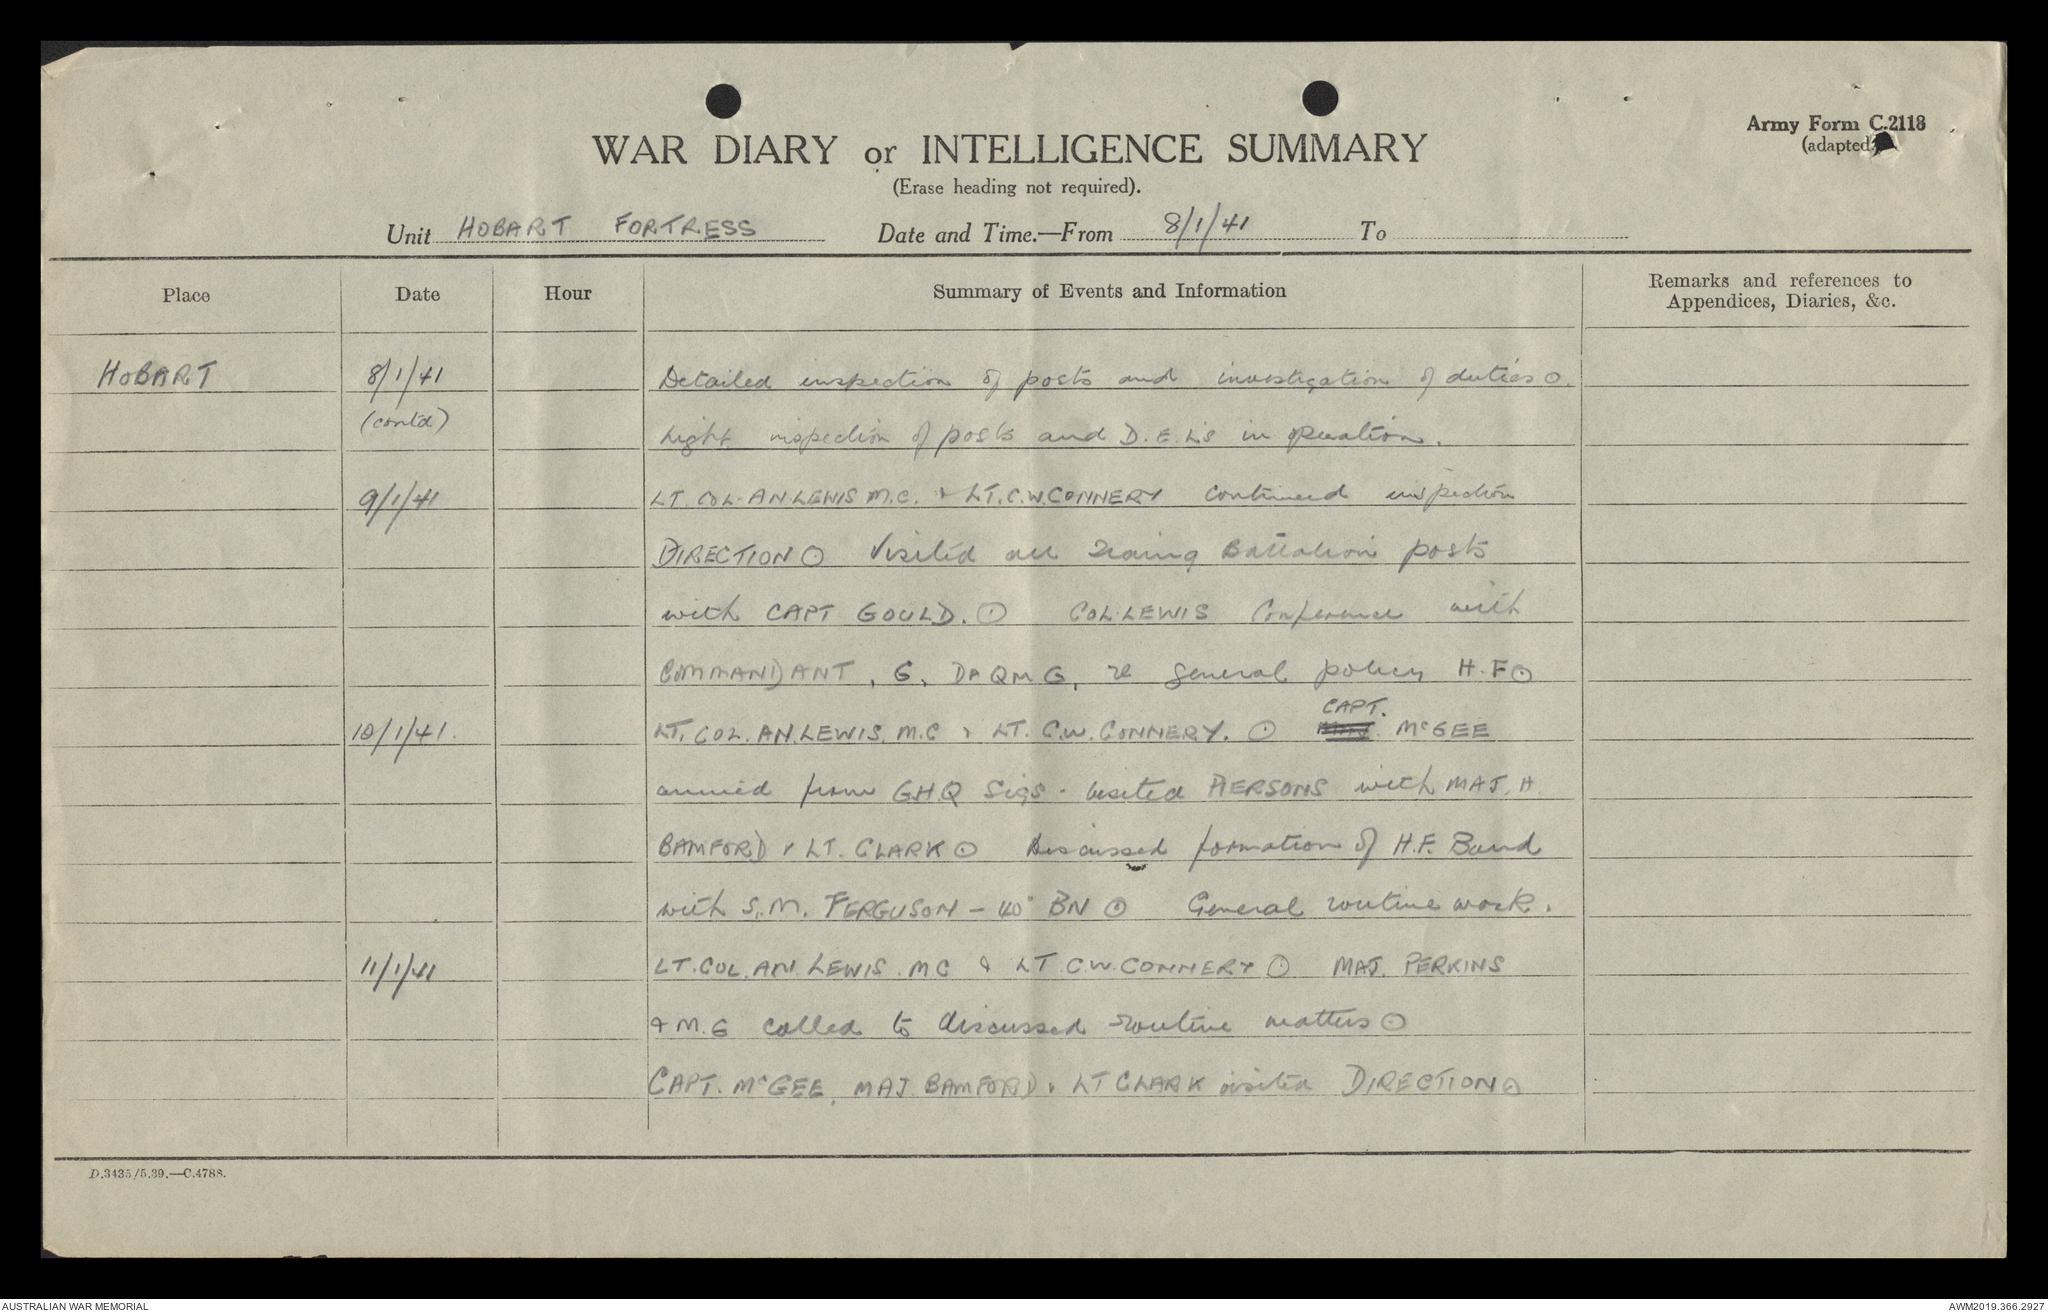 WAR DIARY or INTELLIGENCE SUMMARY
Army Form C.2118
(adapted)
(Erase heading not required).
Unit HOBART FORTRESS Date and Time.—From 8/1/41 To
Place Date Hour Summary of Events and Information Remarks and references to
Appendices, Diaries, &c.
HOBART 8/1/41 Detailed inspection of posts and investigation of duties ⊙.
(contd) Night inspection of posts and D.E.L's in operation.
9/1/41 LT. COL. A.N. LEWIS M.C. & LT. C.W. CONNERY continued inspection
DIRECTION ⊙ Visited all Traing Battalion posts
with CAPT GOULD. ⊙ COL. LEWIS Conference with
COMMANDANT, G, DAQMG, re general policy H.F ⊙
10/1/41. LT. COL. A.N. LEWIS. M.C & LT. C.W. CONNERY. ⊙ CAPT. McGEE
arrived from GHQ Sigs. Visited PIERSONS with MAJ. H.
BAMFORD & LT. CLARK ⊙ Discussed formation of H.F. Band
with S.M. FERGUSON - 40 BN ⊙ General routine work.
11/1/41 LT. COL. A.N. LEWIS. MC & LT C.W. CONNERY ⊙ MAJ. PERKINS
& M.G called to discussed routine matters ⊙
CAPT. McGEE, MAJ. BAMFORD & LT CLARK visited DIRECTION ⊙
D.3435/5.39.—C.4788.
AUSTRALIAN WAR MEMORIAL AWM2019.366.2927